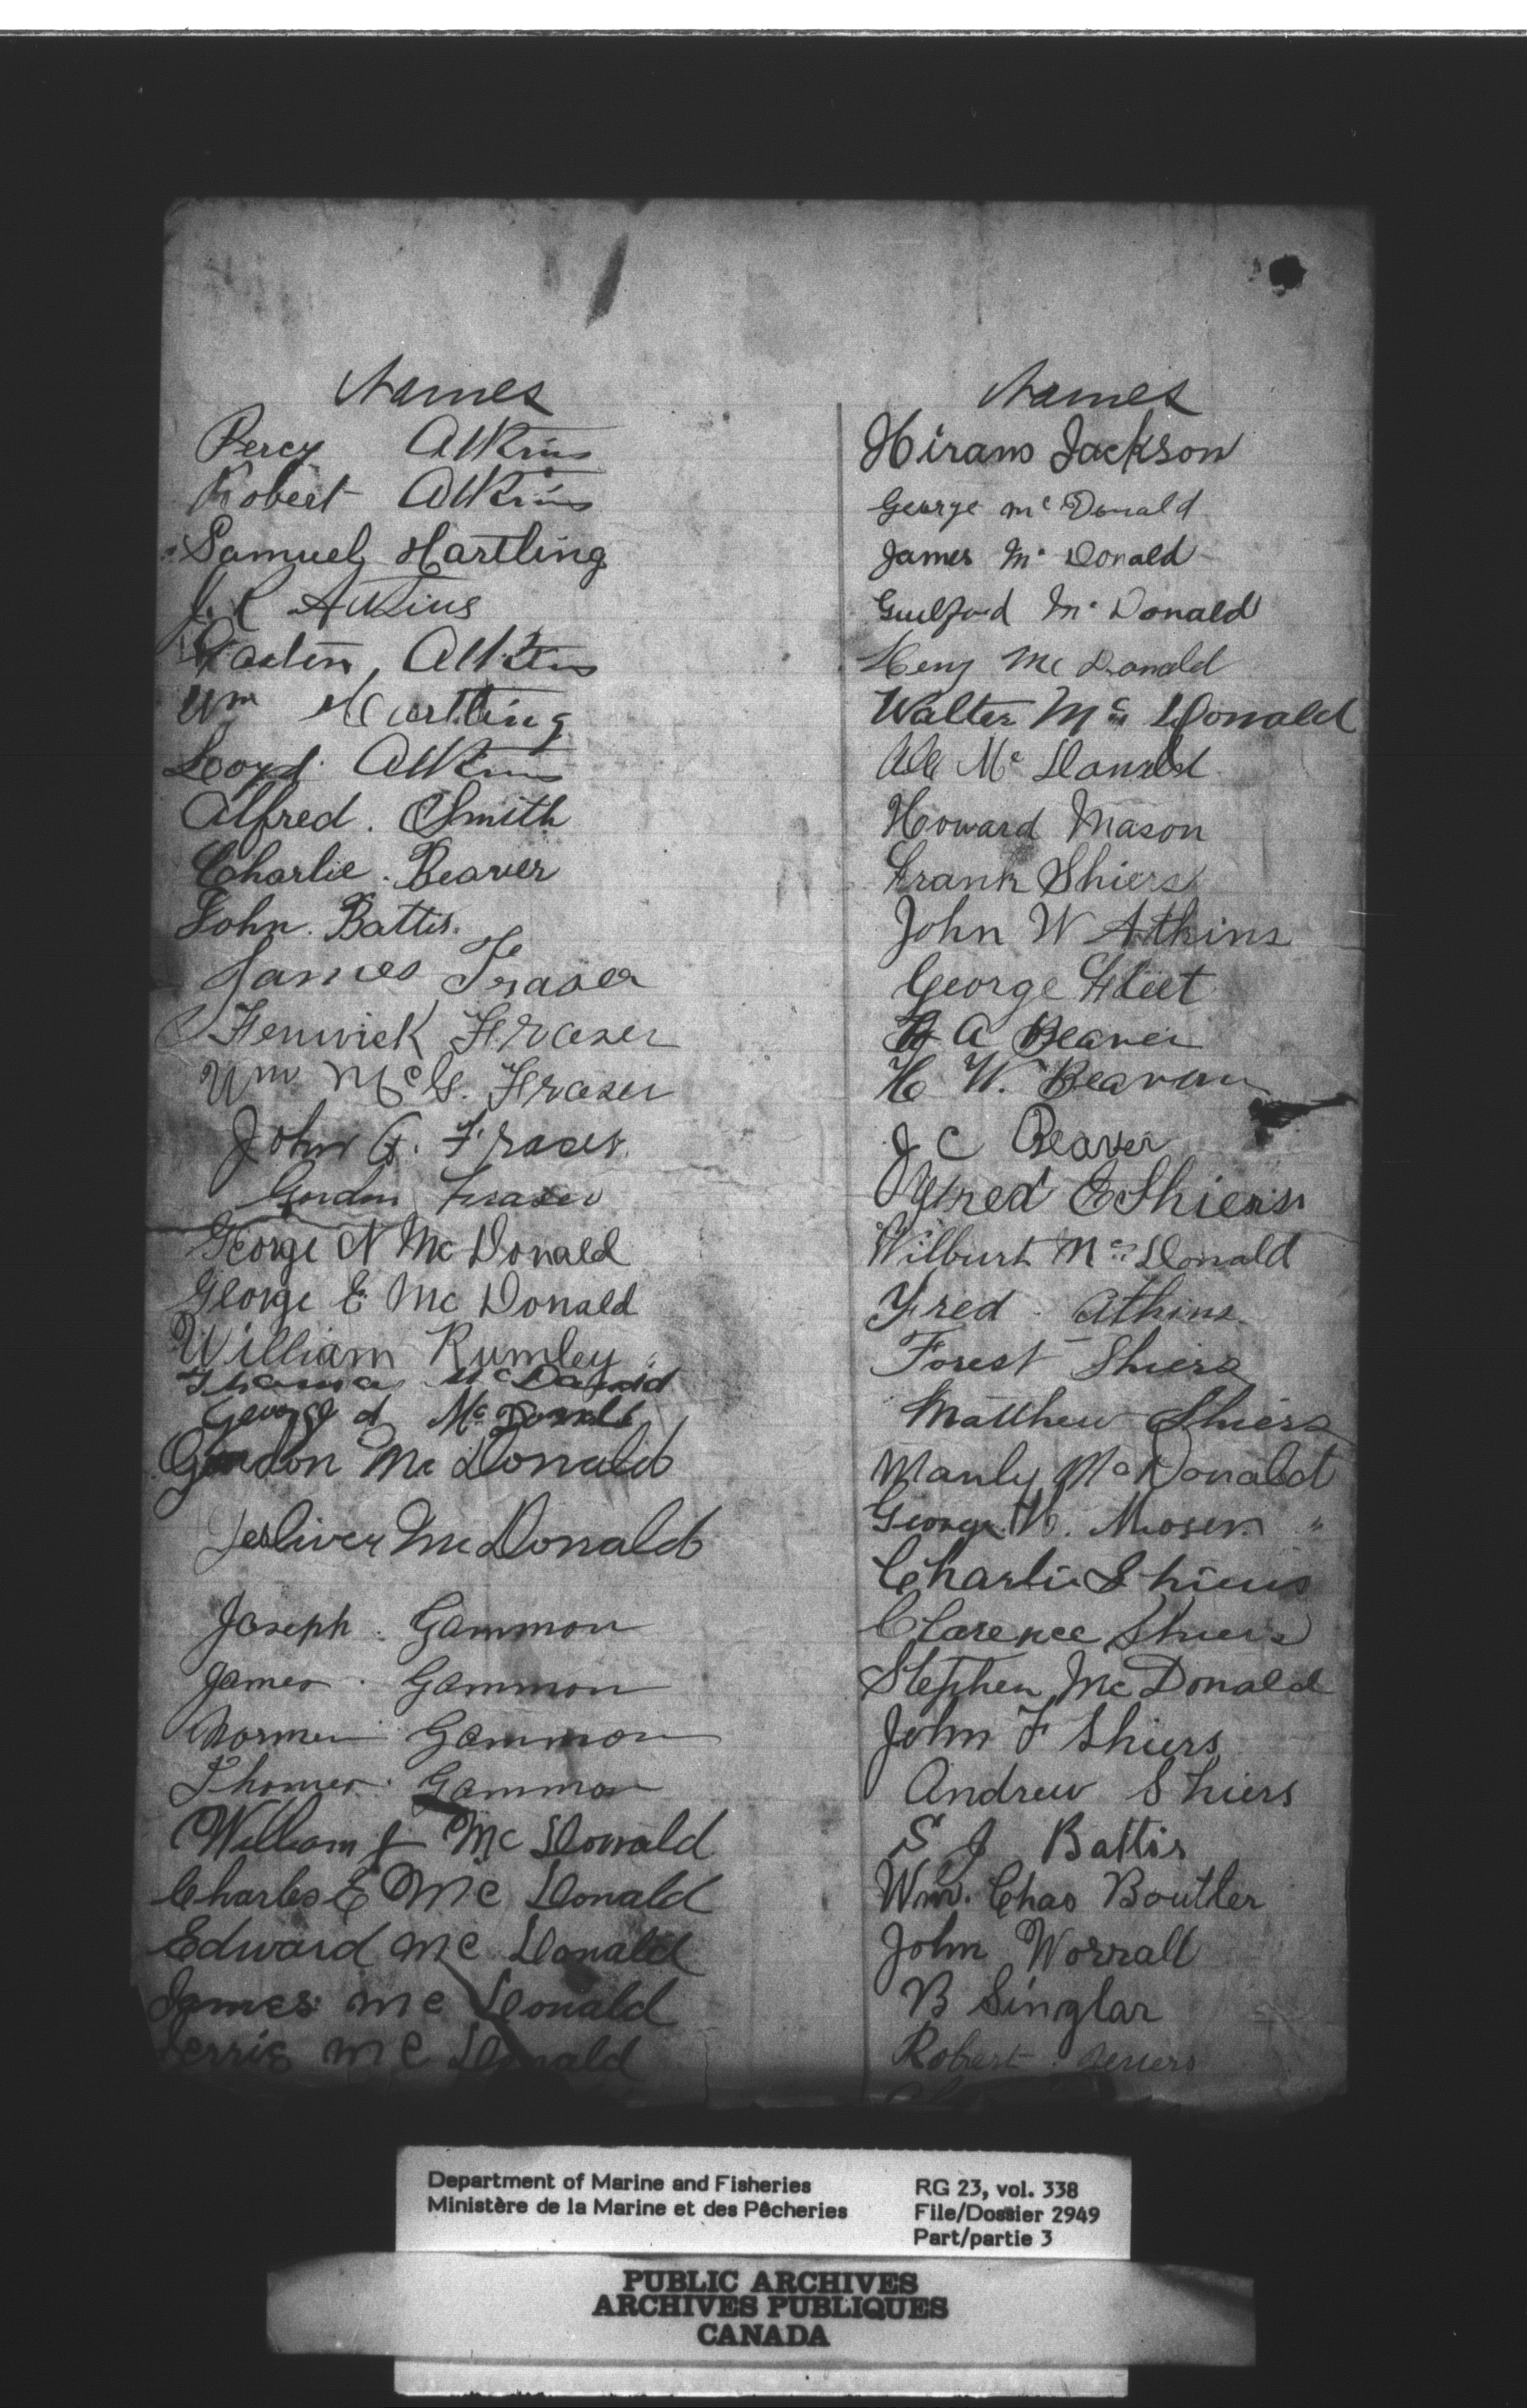 Names
Percy Atkins
Robert Atkins
Samuel Hartling
J. R Atkins
Atkins
Wm Hartling
Loyd Atkins
Alfred. Smith
Charlie. Beaver
John. Battis.
James Fraser
Fenwick Fraser
Wm McG. Fraser
John G. Fraser
Gordon Fraser
George N Mc Donald
George E Mc Donald
William Rumley
Thomas McDonald
George d Mc Donald
Gordon Mc Donald
McDonald
Joseph. Gammon
James. Gammon
Norman Gammon
Thomas. Gammon
William J Mc Donald
Charles E Mc Donald
Edward Mc Donald
James Mc Donald
Mc Donald
Names
Hiram Jackson
George Mc Donald
James Mc Donald
Guilford Mc Donald
Henry Mc Donald
Walter Mc Donald
Mc Donald
Howard Mason
Frank Shiers
John W Atkins
George Fleet
A Beaver
H W. Beaver
J C Beaver
Alfred E Shiers
Wilburt Mc Donald
Fred. Atkins.
Forest Shiers
Matthew Shiers
Manly Mc Donald
George H. Moser "
Charlie Shiers
Clarence Shiers
Stephen Mc Donald
John F Shiers
Andrew Shiers
S J Battis
Wm. Chas Boutler
John Worrall
B Singlar
Robert
Department of Marine and Fisheries
Ministère de la Marine et des Pêcheries
RG 23, vol. 338
File/Dossier 2949
Part/partie 3
PUBLIC ARCHIVES
ARCHIVES PUBLIQUES
CANADA